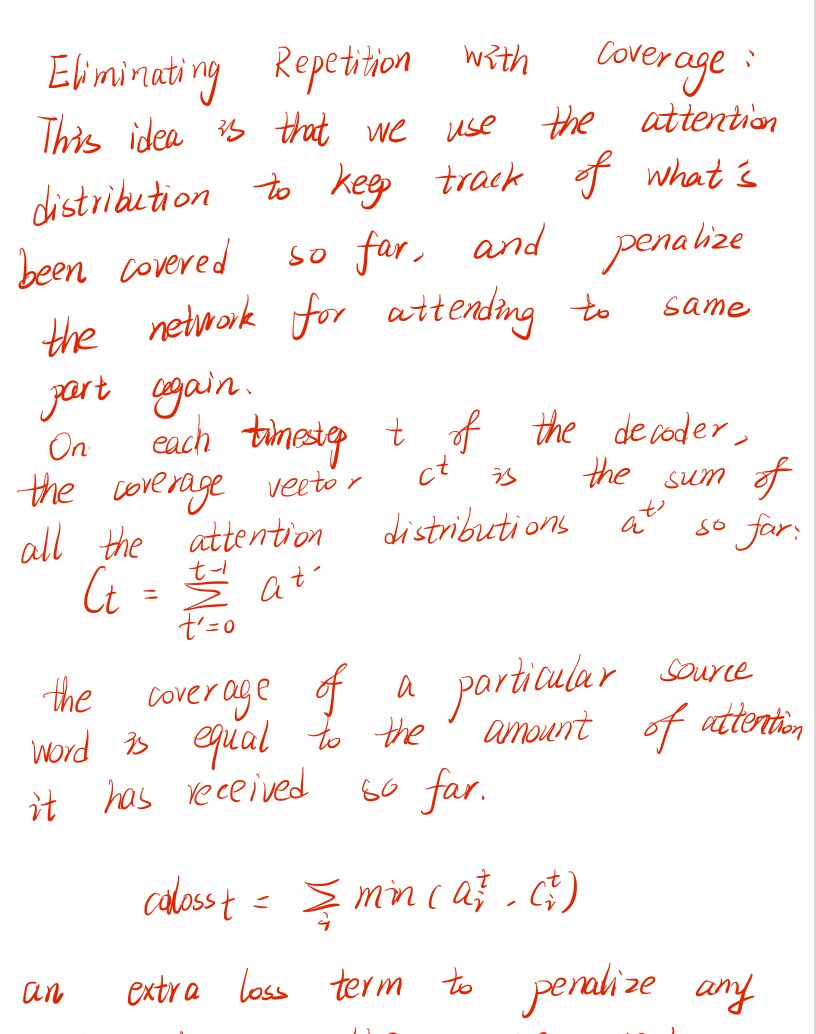 Eliminating Repetition with coverage:
This idea is that we use the attention
distribution to keep track of what's
been covered so far, and penalize
the network for attending to same
part again.
On each timestep t of the decoder,
the coverage vector c^t is the sum of
all the attention distributions a^t' so far:
C_t = ∑_{t'=0}^{t-1} a^t'
the coverage of a particular source
word is equal to the amount of attention
it has received so far.
covloss_t = ∑_i min(a_i^t, c_i^t)
an extra loss term to penalize any